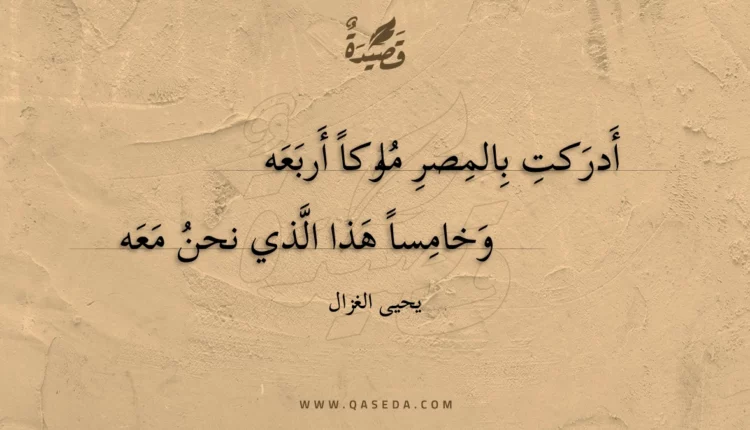 قَصِيدَةٌ
أَدرَكتِ بِالمِصرِ مُلوكاً أَربَعَه
وَخامِساً هَذا الَّذي نحنُ مَعَه
يحيى الغزال
WWW.QASEDA.COM